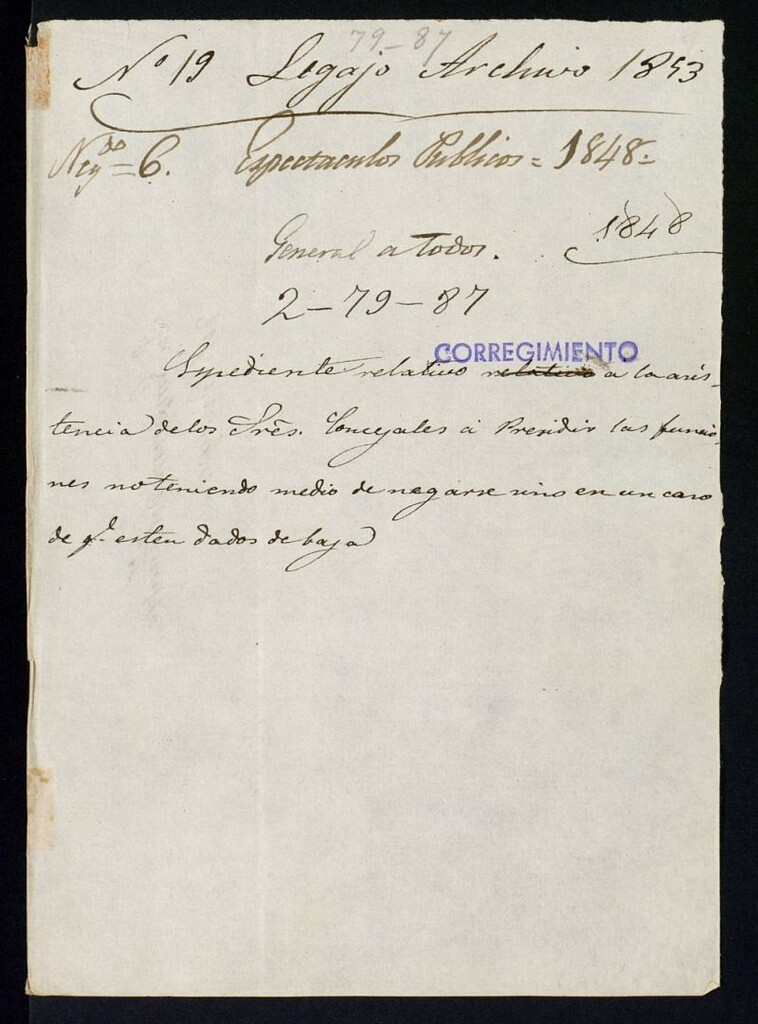 79-87
Nº 19 Legajo Archivo 1853
Negdo = 6. Espectaculos Publicos = 1848 =
1848
General a todos.
2-79-87
CORREGIMIENTO
Expediente relativo relativo a la asis-
tencia de los Sres. Concejales á Presidir las funcio-
nes no teniendo medio de negarse sino en un caso
de q.e esten dados de baja